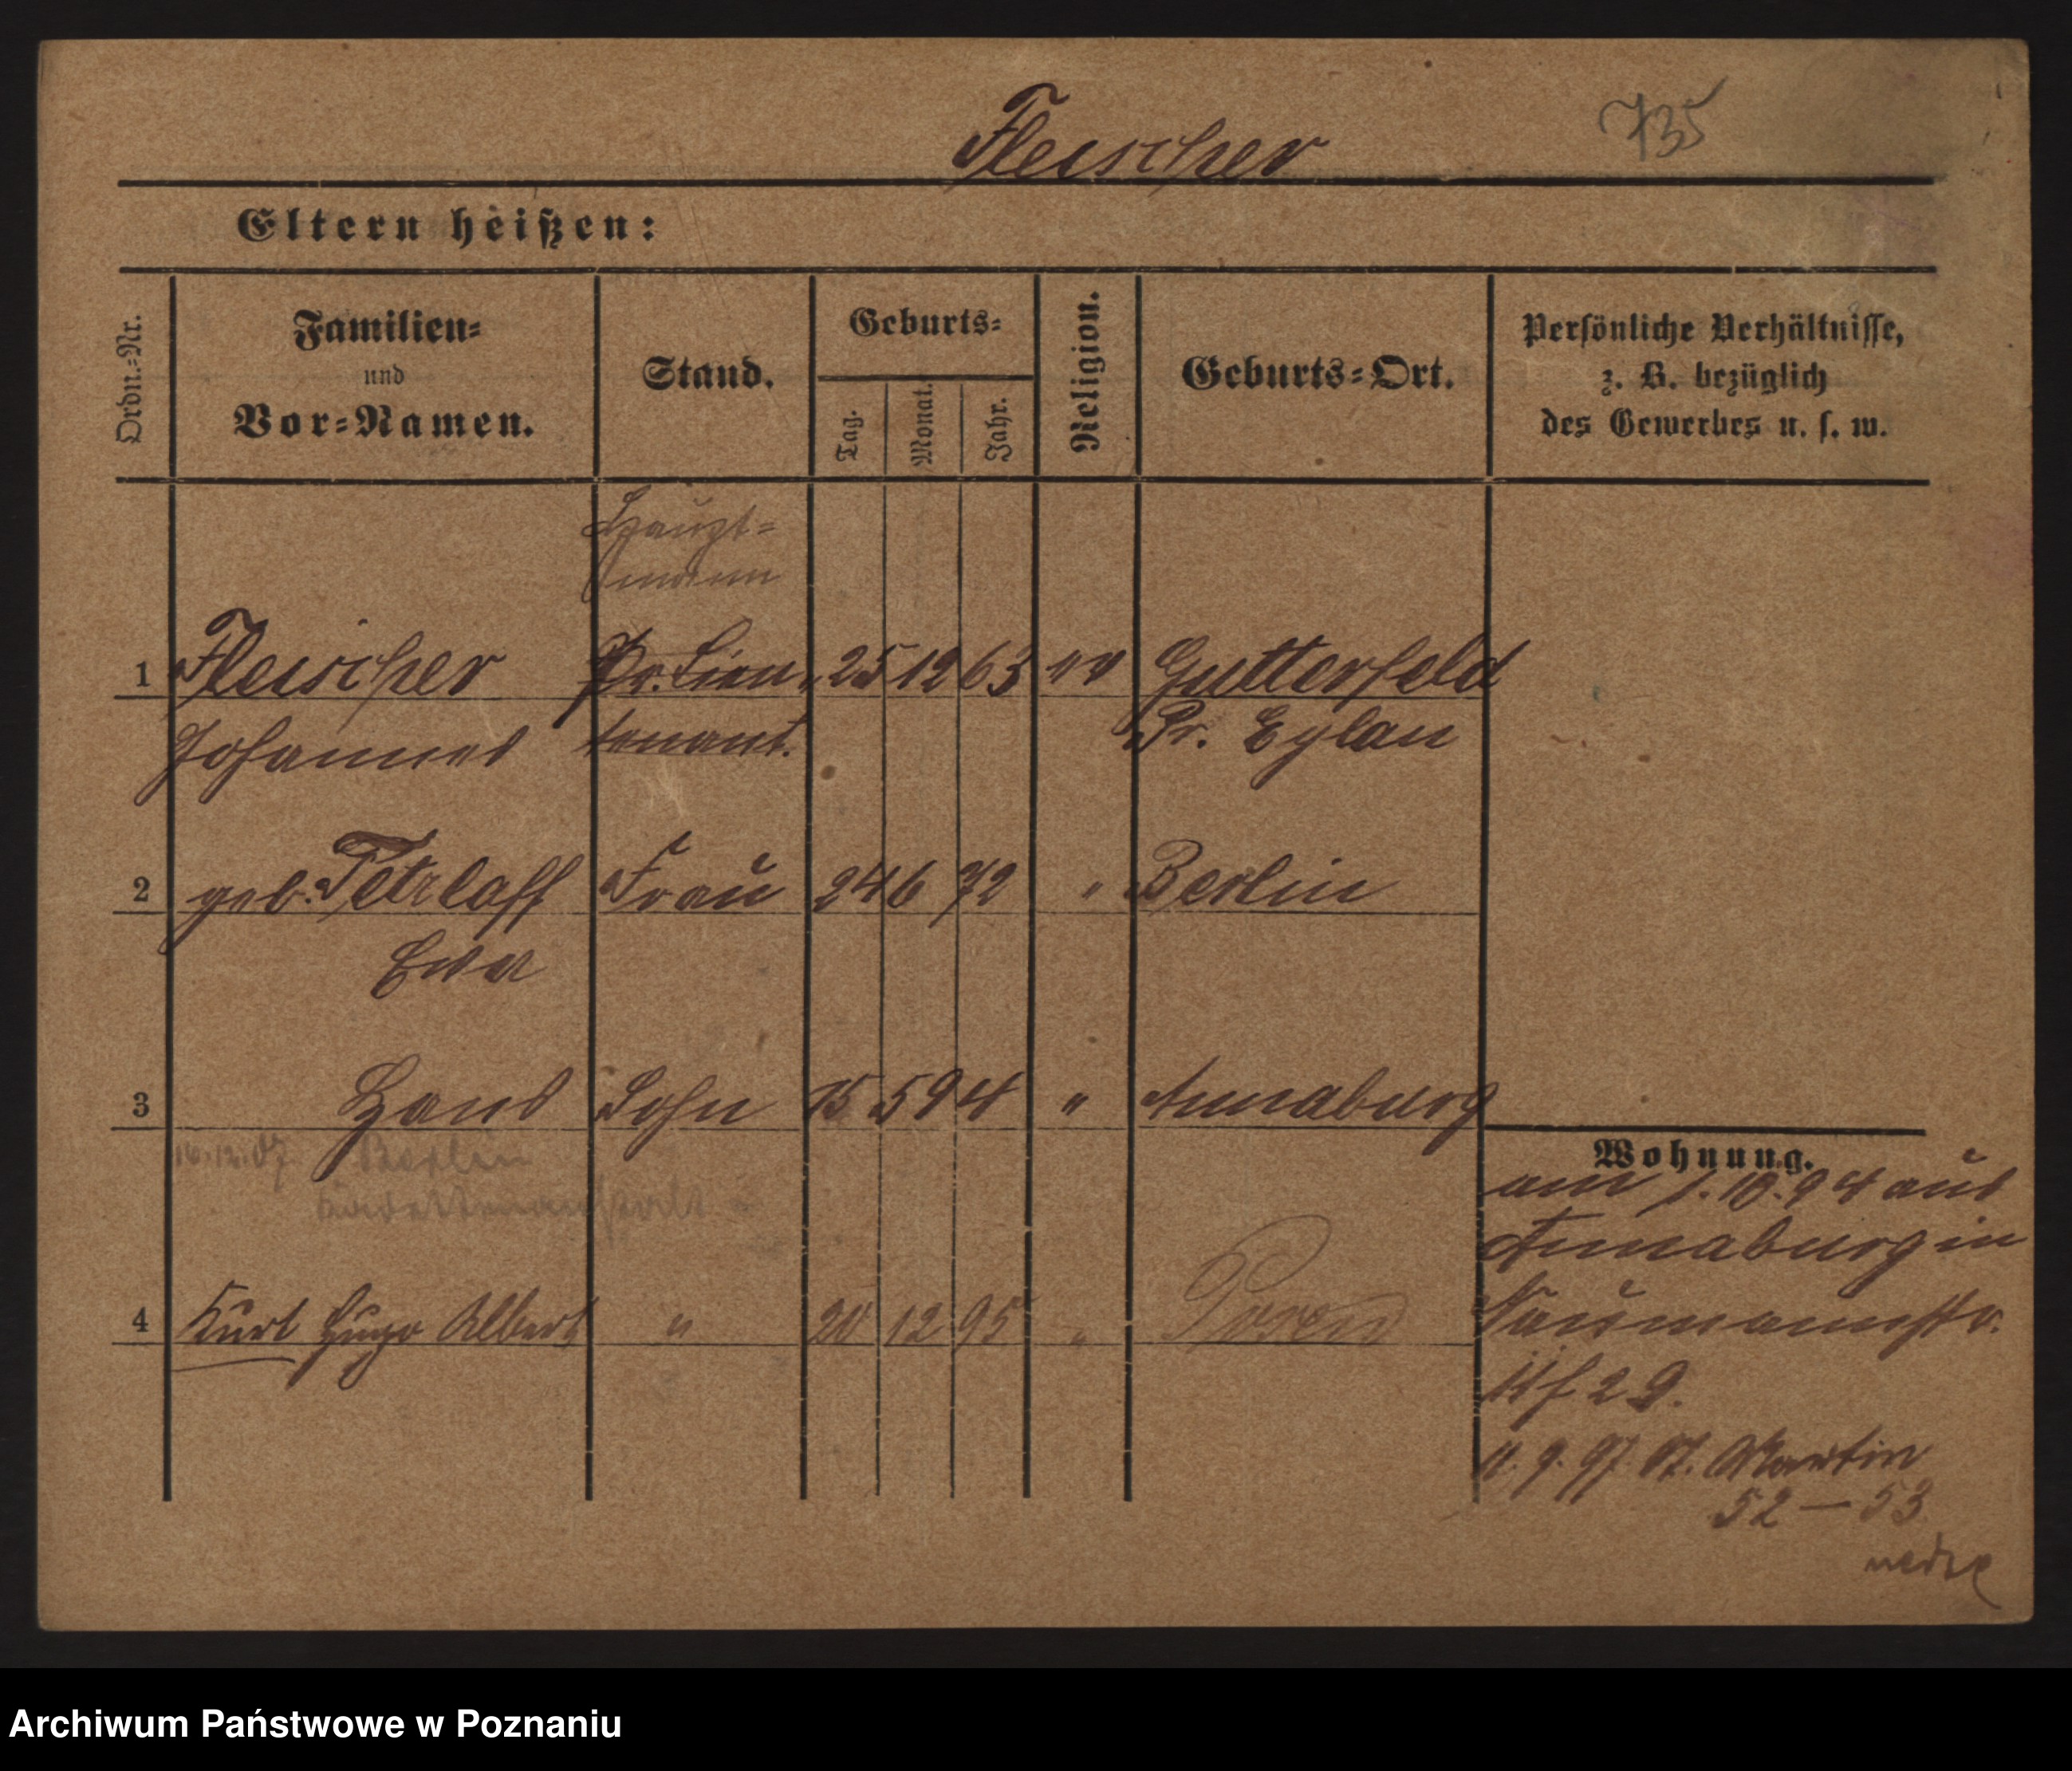 Fleischer 735
Eltern heißen:
Ordn.=Nr.
Familien=
und
Vor=Namen.
Stand.
Geburts=
Tag.
Monat.
Jahr.
Religion.
Geburts=Ort.
Persönliche Verhältnisse,
z. B. bezüglich
des Gewerbes u. s. w.
Haupt=
mann
1 Fleischer Pr. Lieu= 25 12 63 Gutterfeld
Johannes tenant. Pr. Eylau
2 geb. Tetzlaff Frau 24 6 72 " Berlin
Eva
3 Hans Sohn 15 5 94 " Annaburg
16.12.07. Berlin
Kadettenanstalt
4 Kurt Hugo Albert " 20 12 95 " Posen
Wohnung.
am 1.10.94 aus
Annaburg in
Naumannstr.
29.
9. 97 Martin
52 — 53
Archiwum Państwowe w Poznaniu